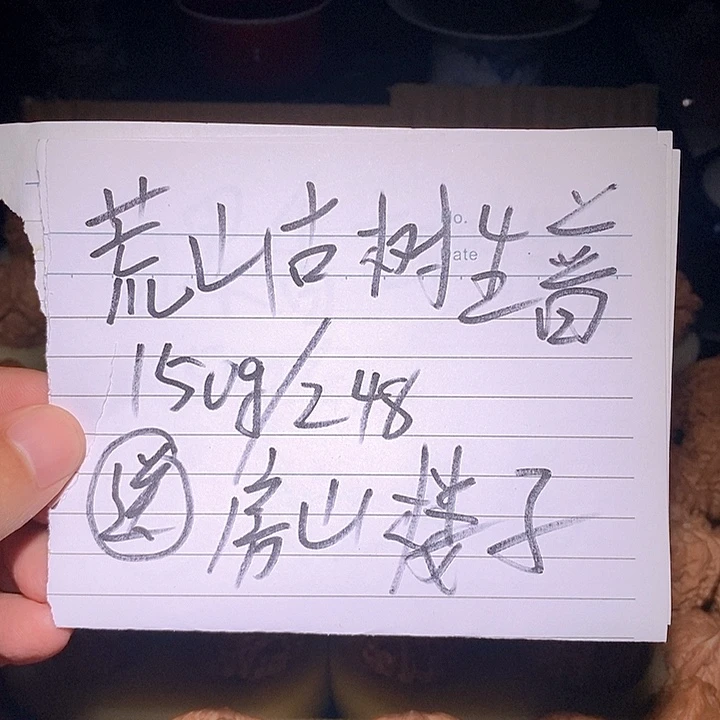 No.
Date
荒山古树生普
150g/248
送 房山楼子